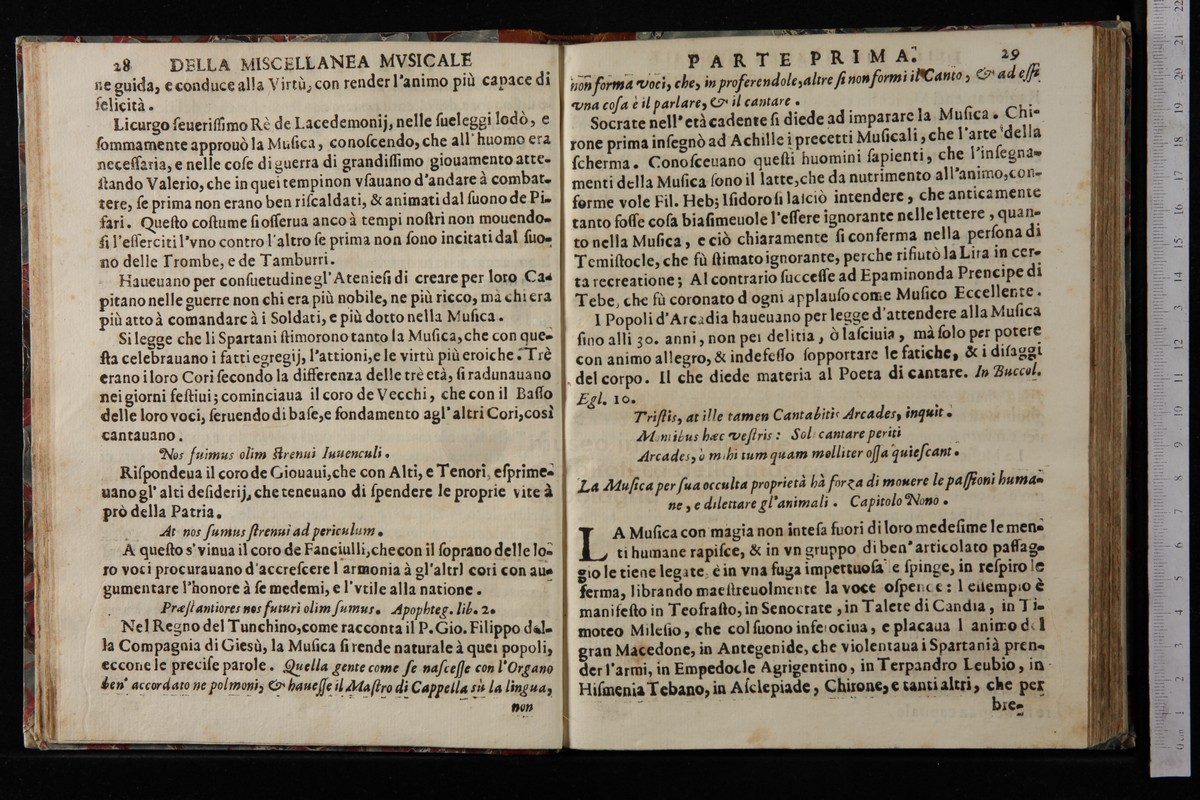 28 DELLA MISCELLANEA MVSICALE
ne guida, e conduce alla Virtù, con render l'animo più capace di
felicità.
Licurgo ſeueriſſimo Rè de Lacedemonij, nelle ſueleggi lodò, e
ſommamente approuò la Muſica, conoſcendo, che all' huomo era
neceſſaria, e nelle coſe di guerra di grandiſſimo giouamento atte-
ſtando Valerio, che in quei tempi non vſauano d'andare à combat-
tere, ſe prima non erano ben riſcaldati, & animati dal ſuono de Pi-
fari. Queſto coſtume ſi oſſerua anco à tempi noſtri non mouendo-
ſi l'eſſerciti l'vno contro l'altro ſe prima non ſono incitati dal ſuo-
no delle Trombe, e de Tamburri.
Haueuano per conſuetudine gl'Atenieſi di creare per loro Ca-
pitano nelle guerre non chi era più nobile, ne più ricco, mà chi era
più atto à comandare à i Soldati, e più dotto nella Muſica.
Si legge che li Spartani ſtimorono tanto la Muſica, che con que-
ſta celebrauano i fatti egregij, l'attioni, e le virtù più eroiche. Trè
erano i loro Cori ſecondo la differenza delle trè età, ſi radunauano
nei giorni feſtiui; cominciaua il coro de Vecchi, che con il Baſſo
delle loro voci, ſeruendo di baſe, e fondamento agl' altri Cori, così
cantauano.
Nos fuimus olim ſtrenui Iuuenculi.
Riſpondeua il coro de Giouaui, che con Alti, e Tenori, eſprime-
uano gl' alti deſiderij, che teneuano di ſpendere le proprie vite à
prò della Patria.
At nos ſumus ſtrenui ad periculum.
A queſto s'vinua il coro de Fanciulli, che con il ſoprano delle lo-
ro voci procurauano d'accreſcere l armonia à gl'altrI cori con au-
gumentare l'honore à ſe medemi, e l'vtile alla natione.
Præſtantiores nos futuri olim ſumus. Apophteg. lib. 2.
Nel Regno del Tunchino, come racconta il P. Gio. Filippo del-
la Compagnia di Gieſù, la Muſica ſi rende naturale à quei popoli,
eccone le preciſe parole. Quella gente come ſe naſceſſe con l'Organo
ben' accordato ne polmoni, & haueſſe il Maſtro di Cappella sù la lingua,
non
PARTE PRIMA. 29
non forma voci, che, in proferendole, altre ſi non formi il Canto, & ad eſſi
vna coſa è il parlare, & il cantare.
Socrate nell' età cadente ſi diede ad imparare la Muſica. Chi-
rone prima inſegnò ad Achille i precetti Muſicali, che l'arte della
ſcherma. Conoſceuano queſti huomini ſapienti, che l'inſegna-
menti della Muſica ſono il latte, che da nutrimento all'animo, con-
forme vole Fil. Heb; Iſidoro ſi laſciò intendere, che anticamente
tanto foſſe coſa biaſimeuole l'eſſere ignorante nelle lettere, quan-
to nella Muſica, e ciò chiaramente ſi conferma nella perſona di
Temiſtocle, che fù ſtimato ignorante, perche rifiutò la Lira in cer-
ta recreatione; Al contrario ſucceſſe ad Epaminonda Prencipe di
Tebe, che fù coronato d ogni applauſo come Muſico Eccellente.
I Popoli d'Arcadia haueuano per legge d'attendere alla Muſica
ſino alli 30. anni, non per delitia, ò laſciuia, mà ſolo per potere
con animo allegro, & indefeſſo ſopportare le fatiche, & i diſaggi
del corpo. Il che diede materia al Poeta di cantare. In Buccol.
Egl. 10.
Triſtis, at ille tamen Cantabitis Arcades, inquit.
Montibus hæc veſtris: Soli cantare periti
Arcades, ò mihi tum quam molliter oſſa quieſcant.
La Muſica per ſua occulta proprietà hà forza di mouere le paſſioni huma-
ne, e dilettare gl'animali. Capitolo Nono.
LA Muſica con magia non inteſa fuori di loro medeſime le men-
ti humane rapiſce, & in vn gruppo di ben' articolato paſſag-
gio le tiene legate, e in vna fuga impettuoſa le ſpinge, in reſpiro le
ferma, librando maeſtreuolmente la voce oſpence: l eſſempio è
manifeſto in Teofraſto, in Senocrate, in Talete di Candia, in Ti-
moteo Mileſio, che col ſuono inferociua, e placaua l animo del
gran Macedone, in Antegenide, che violentaua i Spartani à pren-
der l'armi, in Empedocle Agrigentino, in Terpandro Leubio, in
Hiſmenia Tebano, in Aſclepiade, Chirone, e tanti altri, che per
bre-